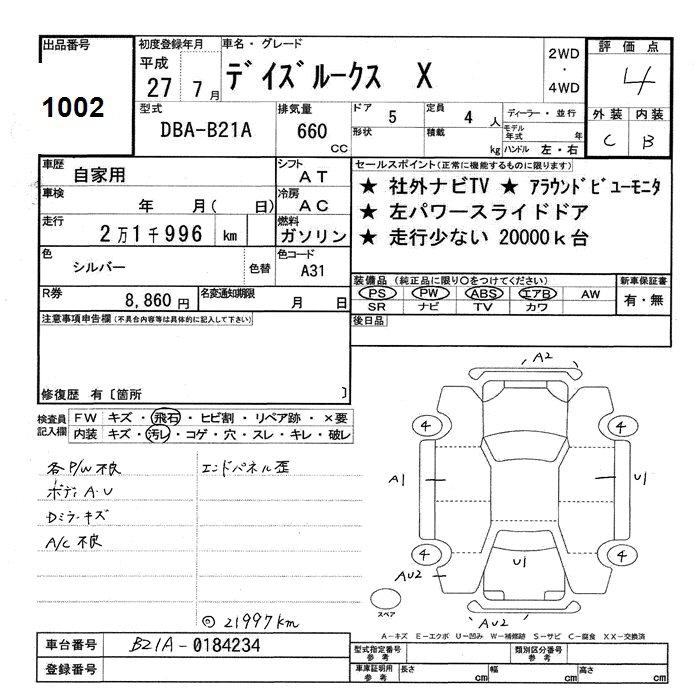 出品番号
1002
初度登録年月
平成
27 7 月
車名・グレード
デイズルークス X
2WD
・
4WD
評価点
4
外装 内装
C B
型式
DBA-B21A
排気量
660
cc
ドア 5
定員 4 人
形状
積載 kg
ディーラー・並行
モデル年式 年
ハンドル 左・右
車歴
自家用
シフト
AT
車検
年 月( 日)
冷房
AC
走行
2万1千996 km
燃料
ガソリン
色
シルバー
色替
色コード
A31
R券
8,860円
名変通知期限
月 日
セールスポイント(正常に機能するものに限ります)
★ 社外ナビTV ★ アラウンドビューモニタ
★ 左パワースライドドア
★ 走行少ない 20000k台
装備品 (純正品に限り○をつけてください)
PS PW ABS エアB AW
SR ナビ TV カワ
新車保証書
有・無
後日品
注意事項申告欄(不具合内容等は具体的に記入して下さい)
修復歴 有〔箇所 〕
検査員
記入欄
FW キズ・飛石・ヒビ割・リペア跡・×要
内装 キズ・汚レ・コゲ・穴・スレ・キレ・破レ
各P/W不良
ボディA・U
Dミラーキズ
A/C不良
エンドパネル歪
◎ 21997km
A2
4
4
A1
U1
4
4
U1
AU2
AU2
スペア
A-キズ E-エクボ U-凹み W-補修跡 S-サビ C-腐食 XX-交換済
車台番号
B21A-0184234
登録番号
型式指定番号
参考
類別区分番号
参考
車庫証明用
参考
長さ cm
幅 cm
高さ cm